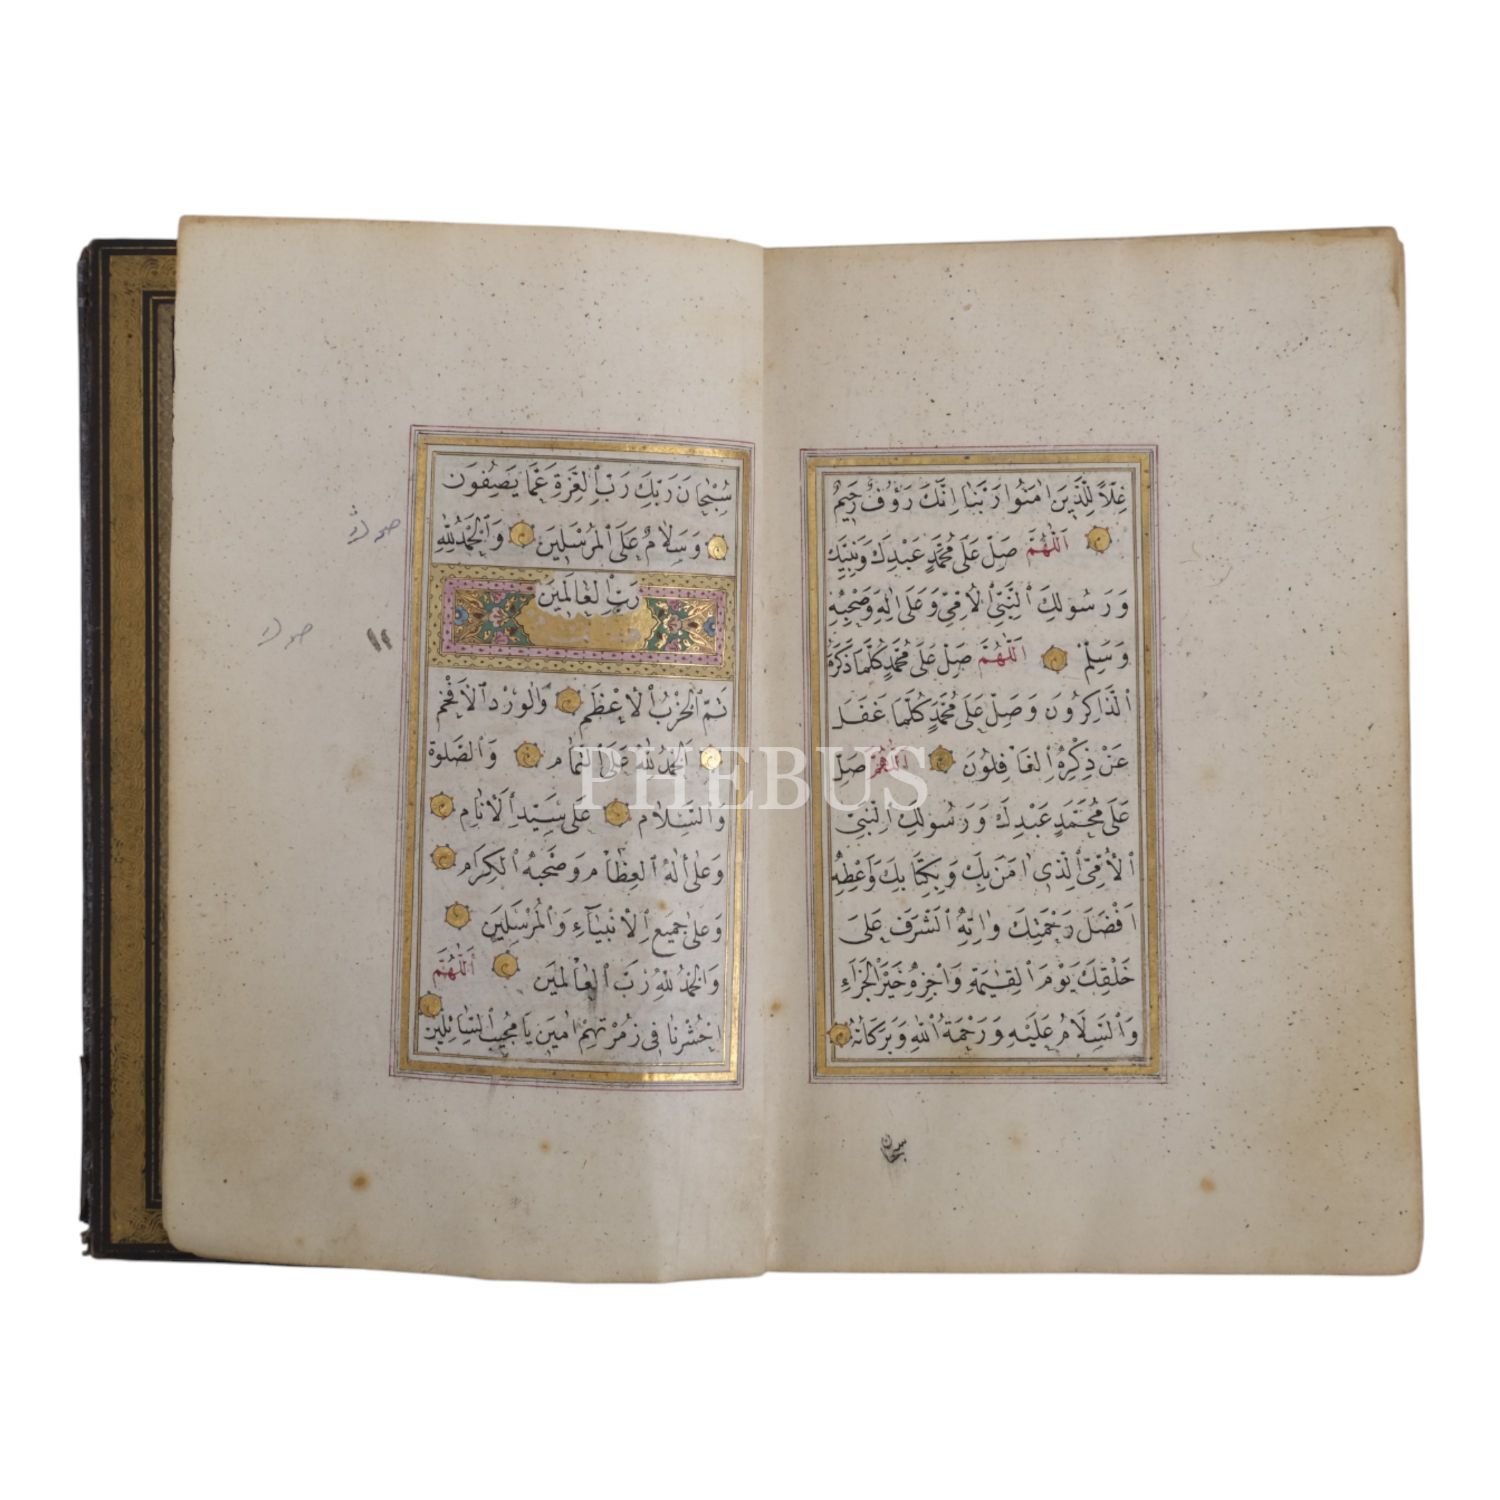 غِلًّا لِلَّذِينَ اٰمَنُوا رَبَّنَا اِنَّكَ رَؤُفٌ رَحِيمٌ
اَللّٰهُمَّ صَلِّ عَلٰى مُحَمَّدٍ عَبْدِكَ وَنَبِيِّكَ
وَرَسُولِكَ النَّبِيِّ الْاُمِّيِّ وَعَلٰى اٰلِهِ وَصَحْبِهِ
وَسَلِّمْ اَللّٰهُمَّ صَلِّ عَلٰى مُحَمَّدٍ كُلَّمَا ذَكَرَهُ
الذَّاكِرُونَ وَصَلِّ عَلٰى مُحَمَّدٍ كُلَّمَا غَفَلَ
عَنْ ذِكْرِهِ الْغَافِلُونَ اَللّٰهُمَّ صَلِّ
عَلٰى مُحَمَّدٍ عَبْدِكَ وَرَسُولِكَ النَّبِيِّ
الْاُمِّيِّ الَّذِي اٰمَنَ بِكَ وَبِكِتَابِكَ وَاَعْطِهِ
اَفْضَلَ رَحْمَتِكَ وَاٰتِهِ الشَّرَفَ عَلٰى
خَلْقِكَ يَوْمَ الْقِيٰمَةِ وَاجْزِهِ خَيْرَ الْجَزَاءِ
وَالسَّلَامُ عَلَيْهِ وَرَحْمَةُ اللّٰهِ وَبَرَكَاتُهُ
سبحان
سُبْحَانَ رَبِّكَ رَبِّ الْعِزَّةِ عَمَّا يَصِفُونَ
وَسَلَامٌ عَلَى الْمُرْسَلِينَ وَالْحَمْدُ لِلّٰهِ
رَبِّ الْعَالَمِينَ
تَمَّ الْحِزْبُ الْاَعْظَمُ وَالْوِرْدُ الْاَفْخَمُ
اَلْحَمْدُ لِلّٰهِ عَلَى التَّمَامِ وَالصَّلٰوةُ
وَالسَّلَامُ عَلٰى سَيِّدِ الْاَنَامِ
وَعَلٰى اٰلِهِ الْعِظَامِ وَصَحْبِهِ الْكِرَامِ
وَعَلٰى جَمِيعِ الْاَنْبِيَاءِ وَالْمُرْسَلِينَ
وَالْحَمْدُ لِلّٰهِ رَبِّ الْعَالَمِينَ اَللّٰهُمَّ
احْشُرْنَا فِي زُمْرَتِهِمْ اٰمِينَ يَا مُجِيبَ السَّائِلِينَ
PHEBUS